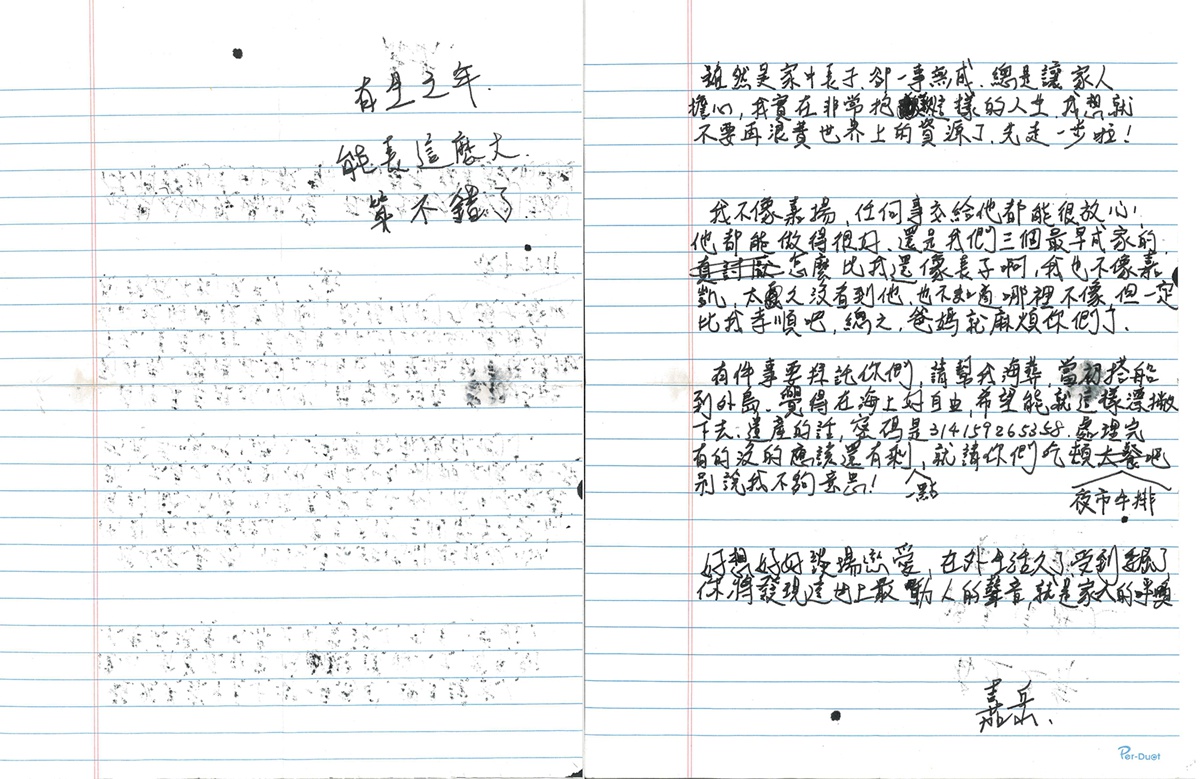 有生之年.
能長這麼大.
算不錯了.
雖然是家中長子.卻一事無成.總是讓家人
擔心,我實在非常抱 這樣的人生.我想就
不要再浪費世界上的資源了.先走一步啦!
我不像嘉揚,任何事交給他都能很放心!
他都能做得很好.還是我們三個最早成家的
真討厭 怎麼比我還像長子啊,我也不像嘉
凱,太久沒看到他,也不知道哪裡不像,但一定
比我孝順吧,總之,爸媽就麻煩你們了.
有件事要拜託你們,請幫我海葬,當初搭船
到外島.覺得在海上好自由,希望能就這樣漂撇
下去.遺產的話,密碼是314159265358.處理完
有的沒的應該還有剩,就請你們吃頓大餐吧
別說我不夠意思!
一點
夜市牛排
好想好好談場戀愛,在外生活久了.受到
你將發現這世上最動人的聲音,就是家人的呼喚
嘉
Per-Duet